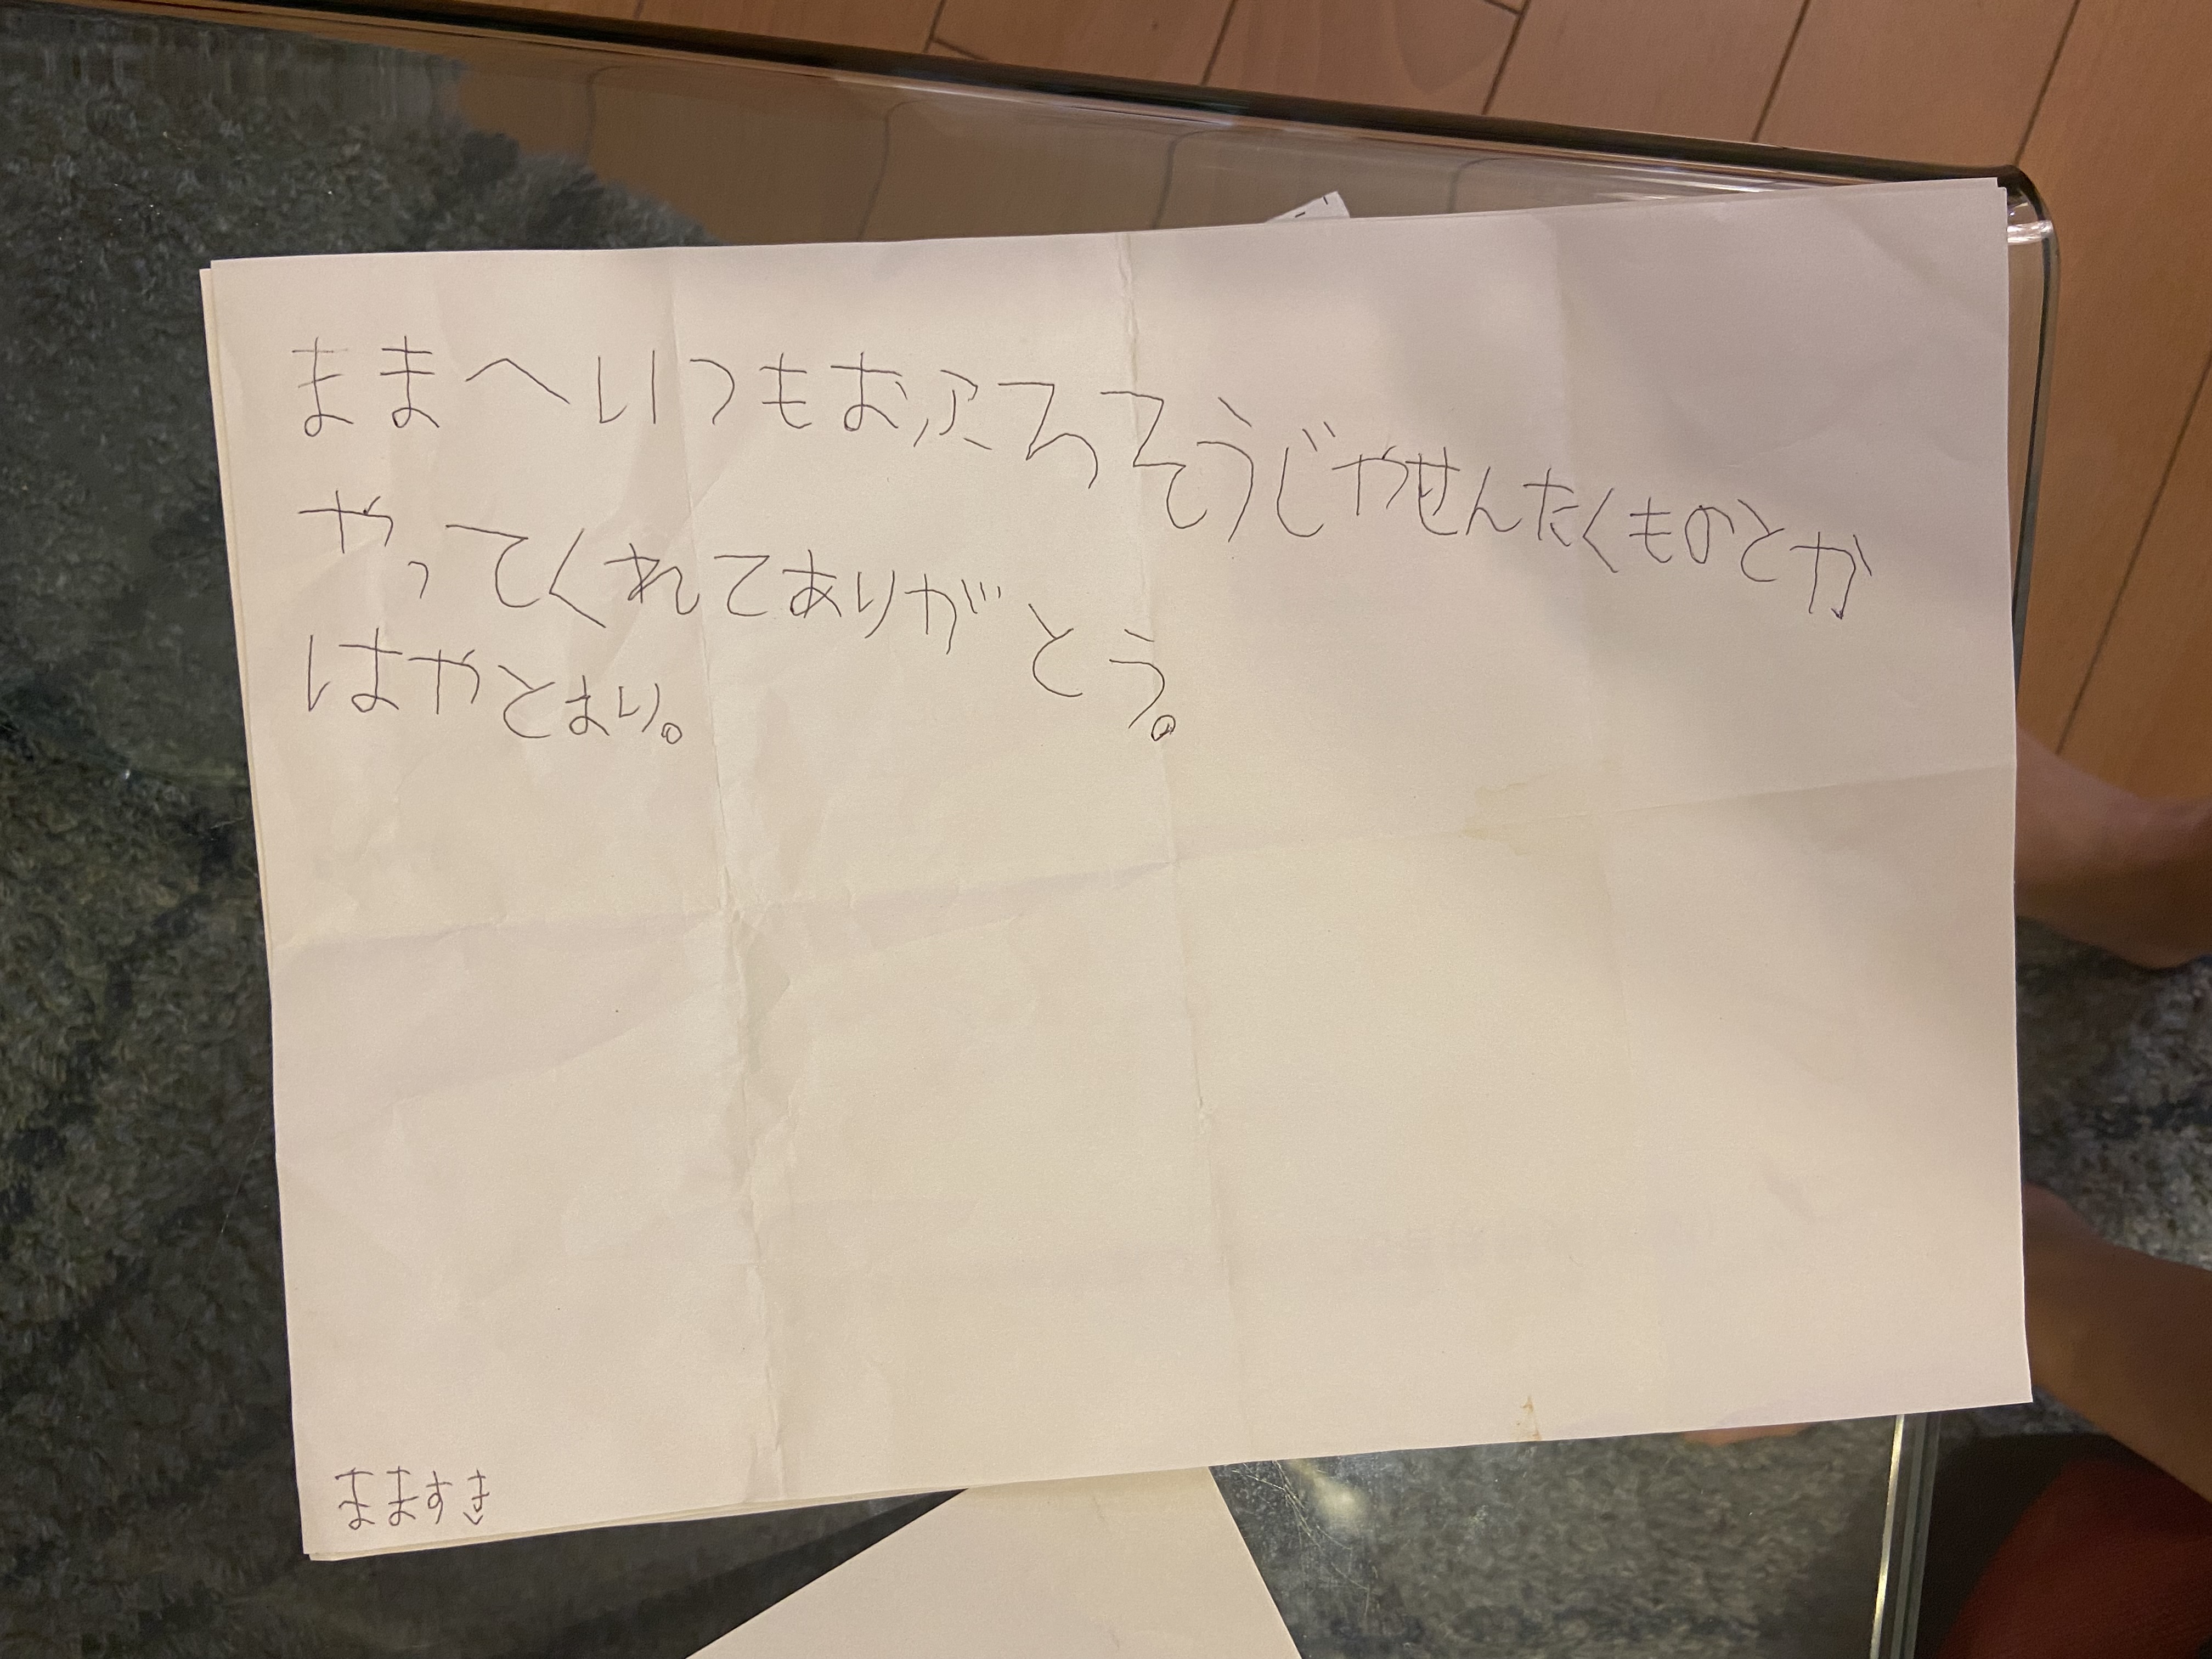 ままへいつもおふろそうじやせんたくものとか
やってくれてありがとう。
はやとまり。
まますき